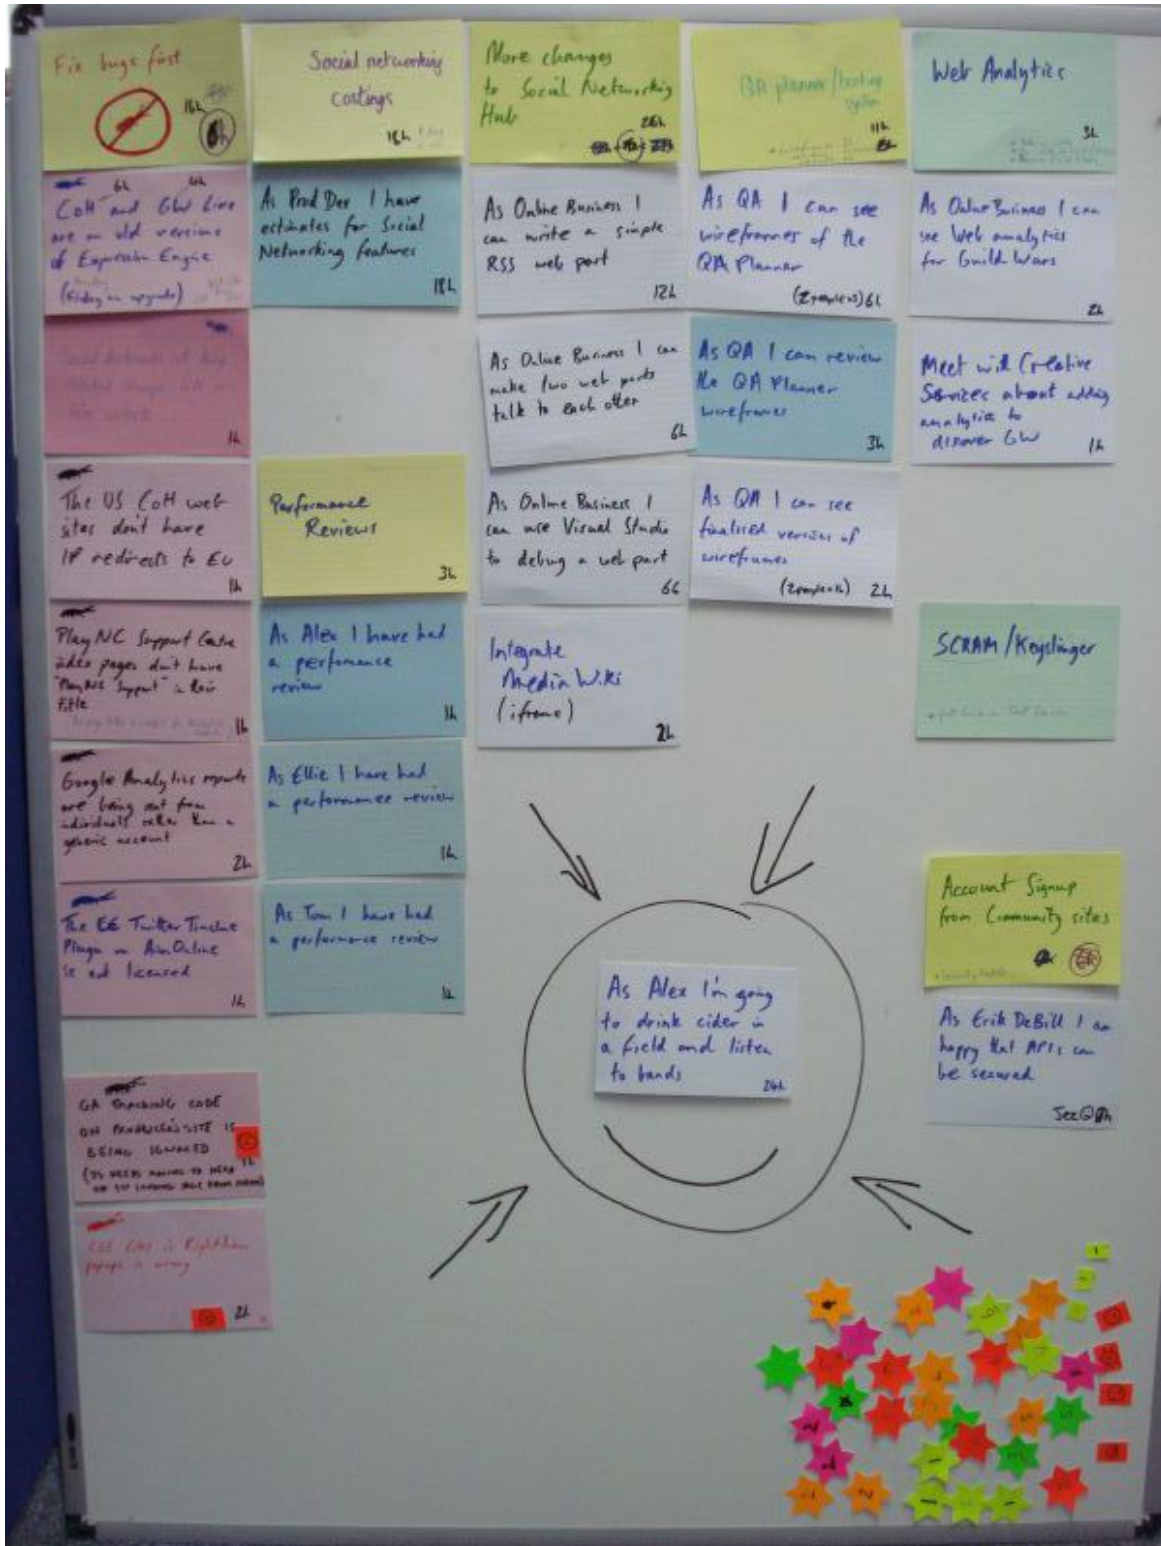 Fix bugs first
16h
CoH and GW Live
6h
4h
are on old versions
of Expression Engine
1h
The US CoH web
sites don't have
IP redirects to EU
1h
PlayNC Support Centre
index pages don't have
"PlayNC Support" in their
title
1h
Google Analytics reports
are being sent from
individuals rather than a
generic account
2h
The EE Twitter Timeline
Plugin on AionOnline
is not licensed
1h
GA TRACKING CODE
ON SITE IS
BEING IGNORED
1h
CSS in
popups is wrong
2h
Social networking
costings
18h
As Prod Dev I have
estimates for Social
Networking features
18h
Performance
Reviews
3h
As Alex I have had
a perfomance
review
1h
As Ellie I have had
a performance review
1h
As Tom I have had
a performance review
1h
More changes
to Social Networking
Hub
26h
As Online Business I
can write a simple
RSS web part
12h
As Online Business I can
make two web parts
talk to each other
6h
As Online Business I
can use Visual Studio
to debug a web part
6h
Integrate
Media Wiki
(iframe)
2h
QA planner/booking
system
11h
As QA I can see
wireframes of the
QA Planner
6h
As QA I can review
the QA Planner
wireframes
3h
As QA I can see
finalised version of
wireframes
2h
Web Analytics
3h
As Online Business I can
see Web analytics
for Guild Wars
2h
Meet with Creative
Services about adding
analytics to
discover GW
1h
SCRAM/Keyslinger
Account Signup
from Community sites
As Erik DeBill I am
happy that APIs can
be secured
As Alex I'm going
to drink cider in
a field and listen
to bands
24h